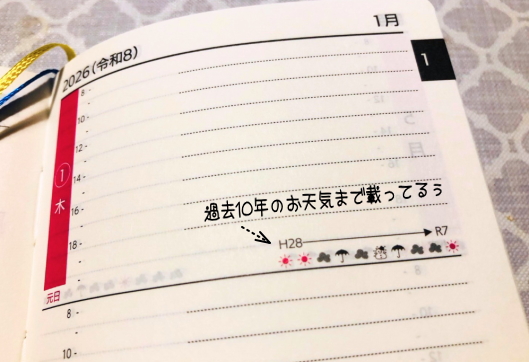 1月
2026(令和8)
1
8
10
12
14
16
18
1
木
元日
過去10年のお天気まで載ってるぅ
H28
R7
8
10